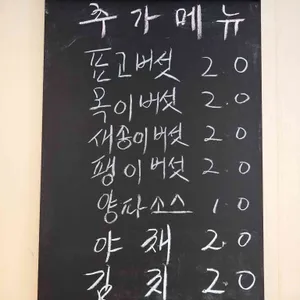 추가메뉴
표고버섯 2.0
목이버섯 2.0
새송이버섯 2.0
팽이버섯 2.0
양파소스 1.0
야채 2.0
김치 2.0